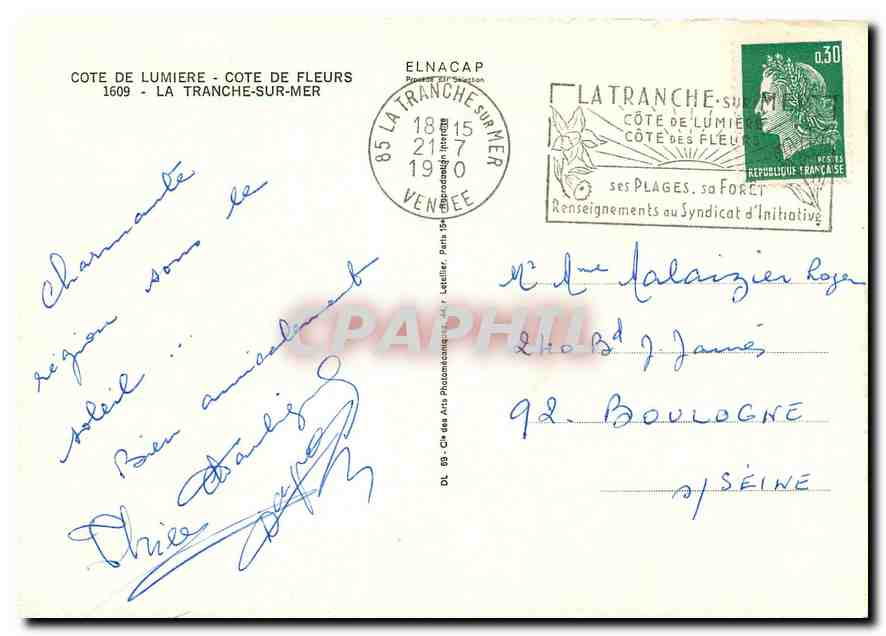 COTE DE LUMIERE - COTE DE FLEURS
1609 - LA TRANCHE-SUR-MER
ELNACAP
Procédé par Sélection
85 LA TRANCHE SUR MER
18H15
21-7
1970
VENDEE
LA TRANCHE-SUR-MER
CÔTE DE LUMIÈRE
CÔTE DES FLEURS
ses PLAGES, sa FORET
Renseignements au Syndicat d'Initiative
0,30
POSTES
REPUBLIQUE FRANÇAISE
Charmante
région sous le
soleil...
Bien amicalement
DL 69 - Cie des Arts Photomécaniques, 44, r Letellier, Paris 15e - Reproduction Interdite
Mr Mme Malaizier Roger
240 Bd J. Jaurés
92. BOULOGNE
s/ SEINE
CPAPHIL